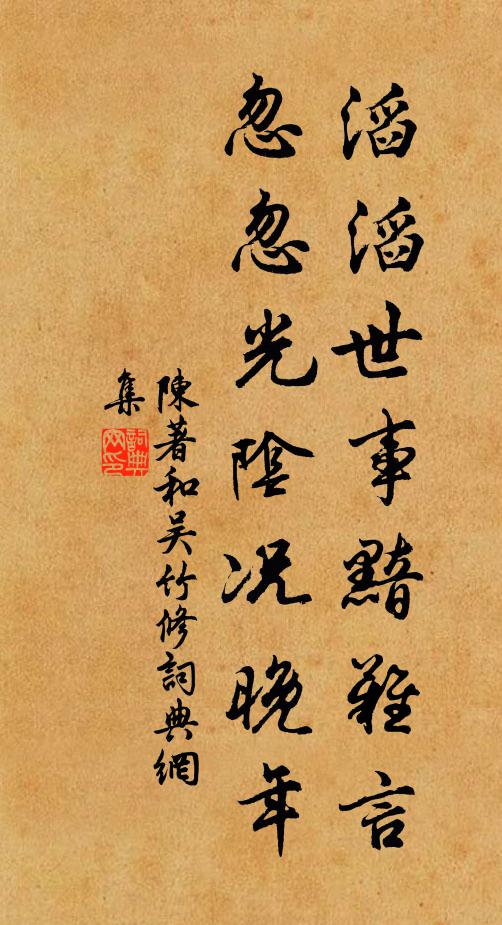 滔滔世事黯難言
忽忽光陰況晚年
陳著和吴竹修詞典網
集
詞典網印